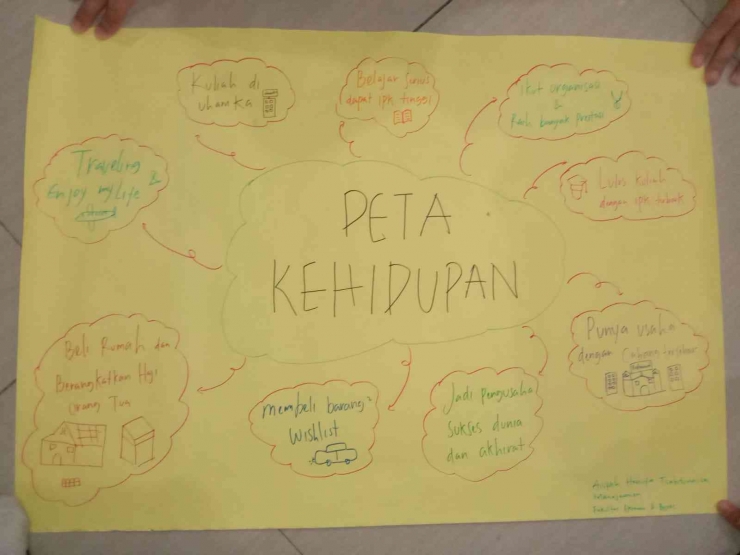 PETA
KEHIDUPAN
Kuliah di
uhamka
Belajar Serius
dapat ipk tinggi
Ikut organisasi
&
Raih banyak prestasi
Lulus Kuliah
dengan ipk terbaik
Punya usaha
dengan Cabang tersebar
Jadi Pengusaha
Sukses dunia
dan akhirat
Membeli barang²
Wishlist
Beli Rumah dan
Berangkatkan Haji
Orang Tua
Traveling
& Enjoy my Life